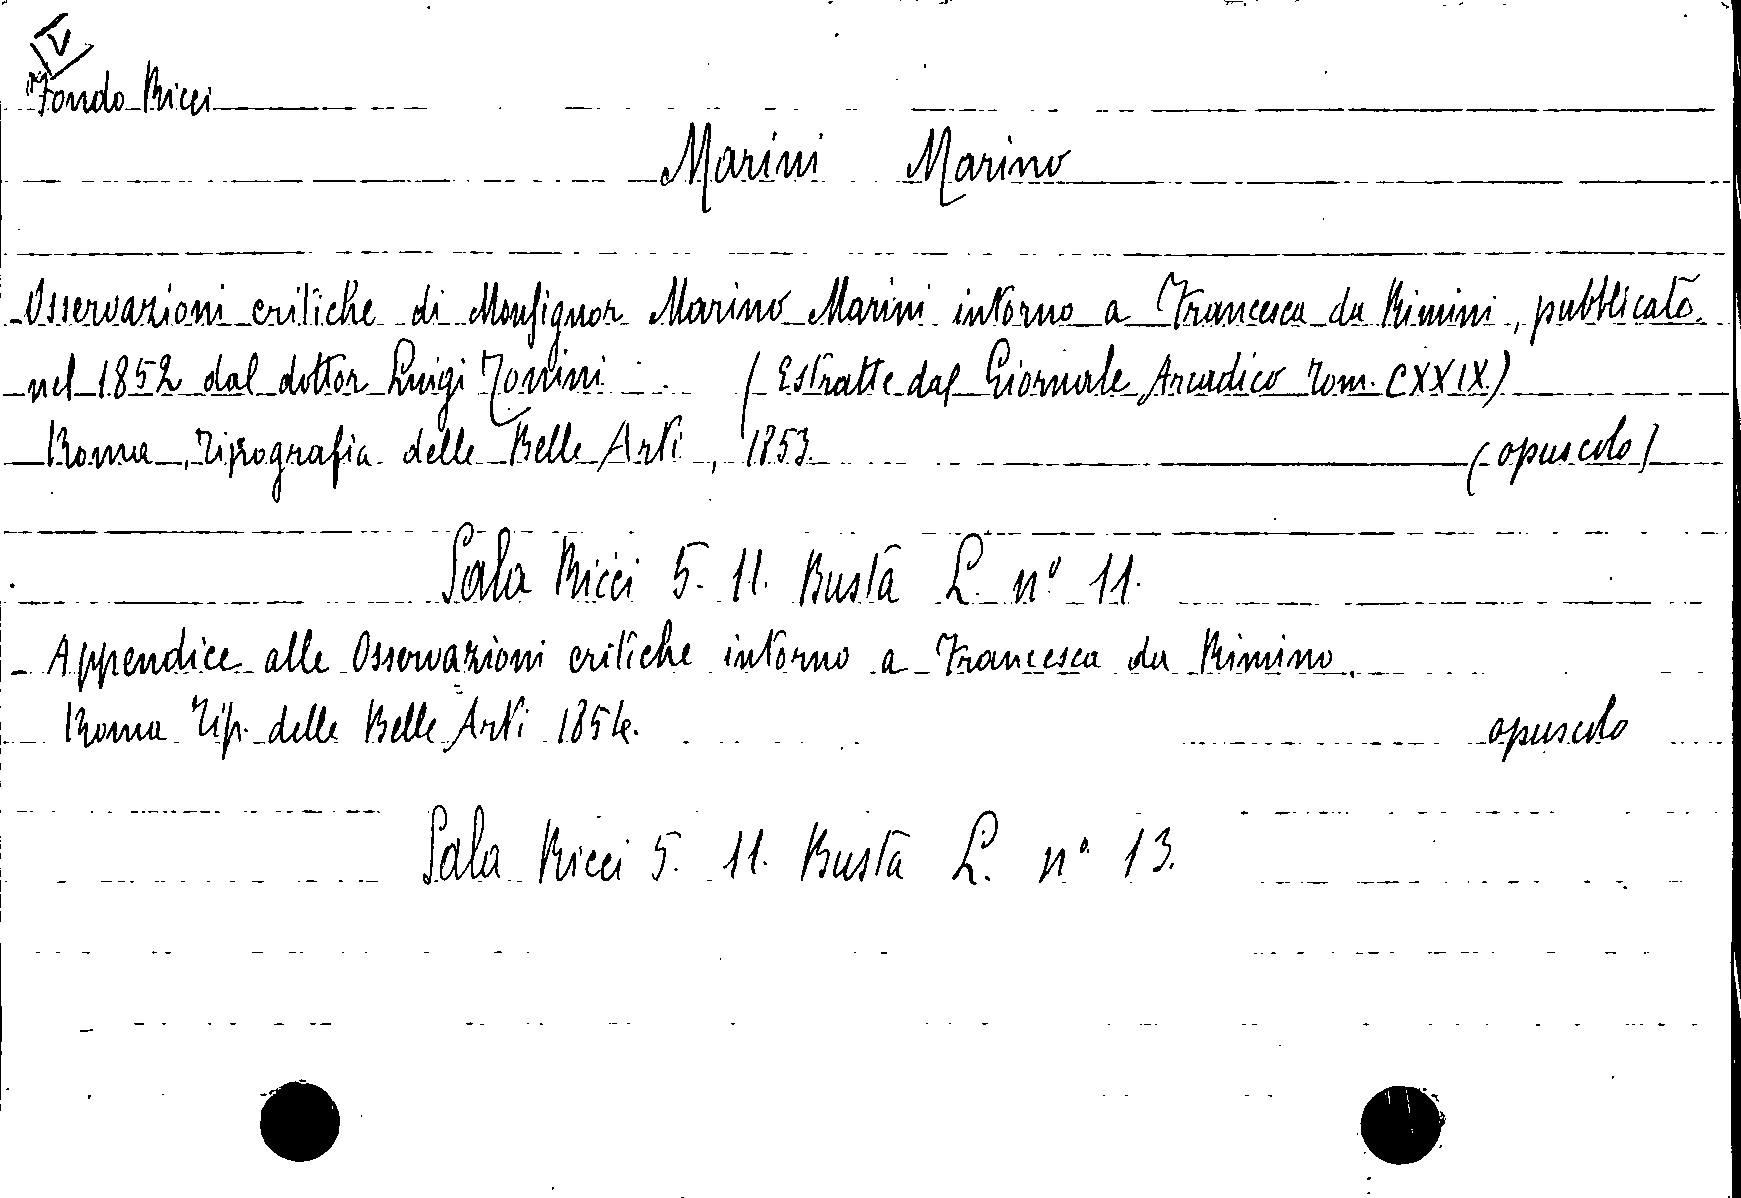 V
Fondo Ricci
Marini Marino
Osservazioni critiche di Monsignor Marino Marini intorno a Francesca da Rimini, pubblicato
nel 1852 dal dottor Luigi Tonini (Estratte dal Giornale Arcadico Tom. CXXIX)
Roma, Tipografia delle Belle Arti, 1853 (opuscolo)
Sala Ricci 5. 11. Busta L. n° 11.
- Appendice alle Osservazioni critiche intorno a Francesca da Rimino.
Roma Tip. delle Belle Arti 1854. opuscolo
Sala Ricci 5. 11. Busta L. n° 13.